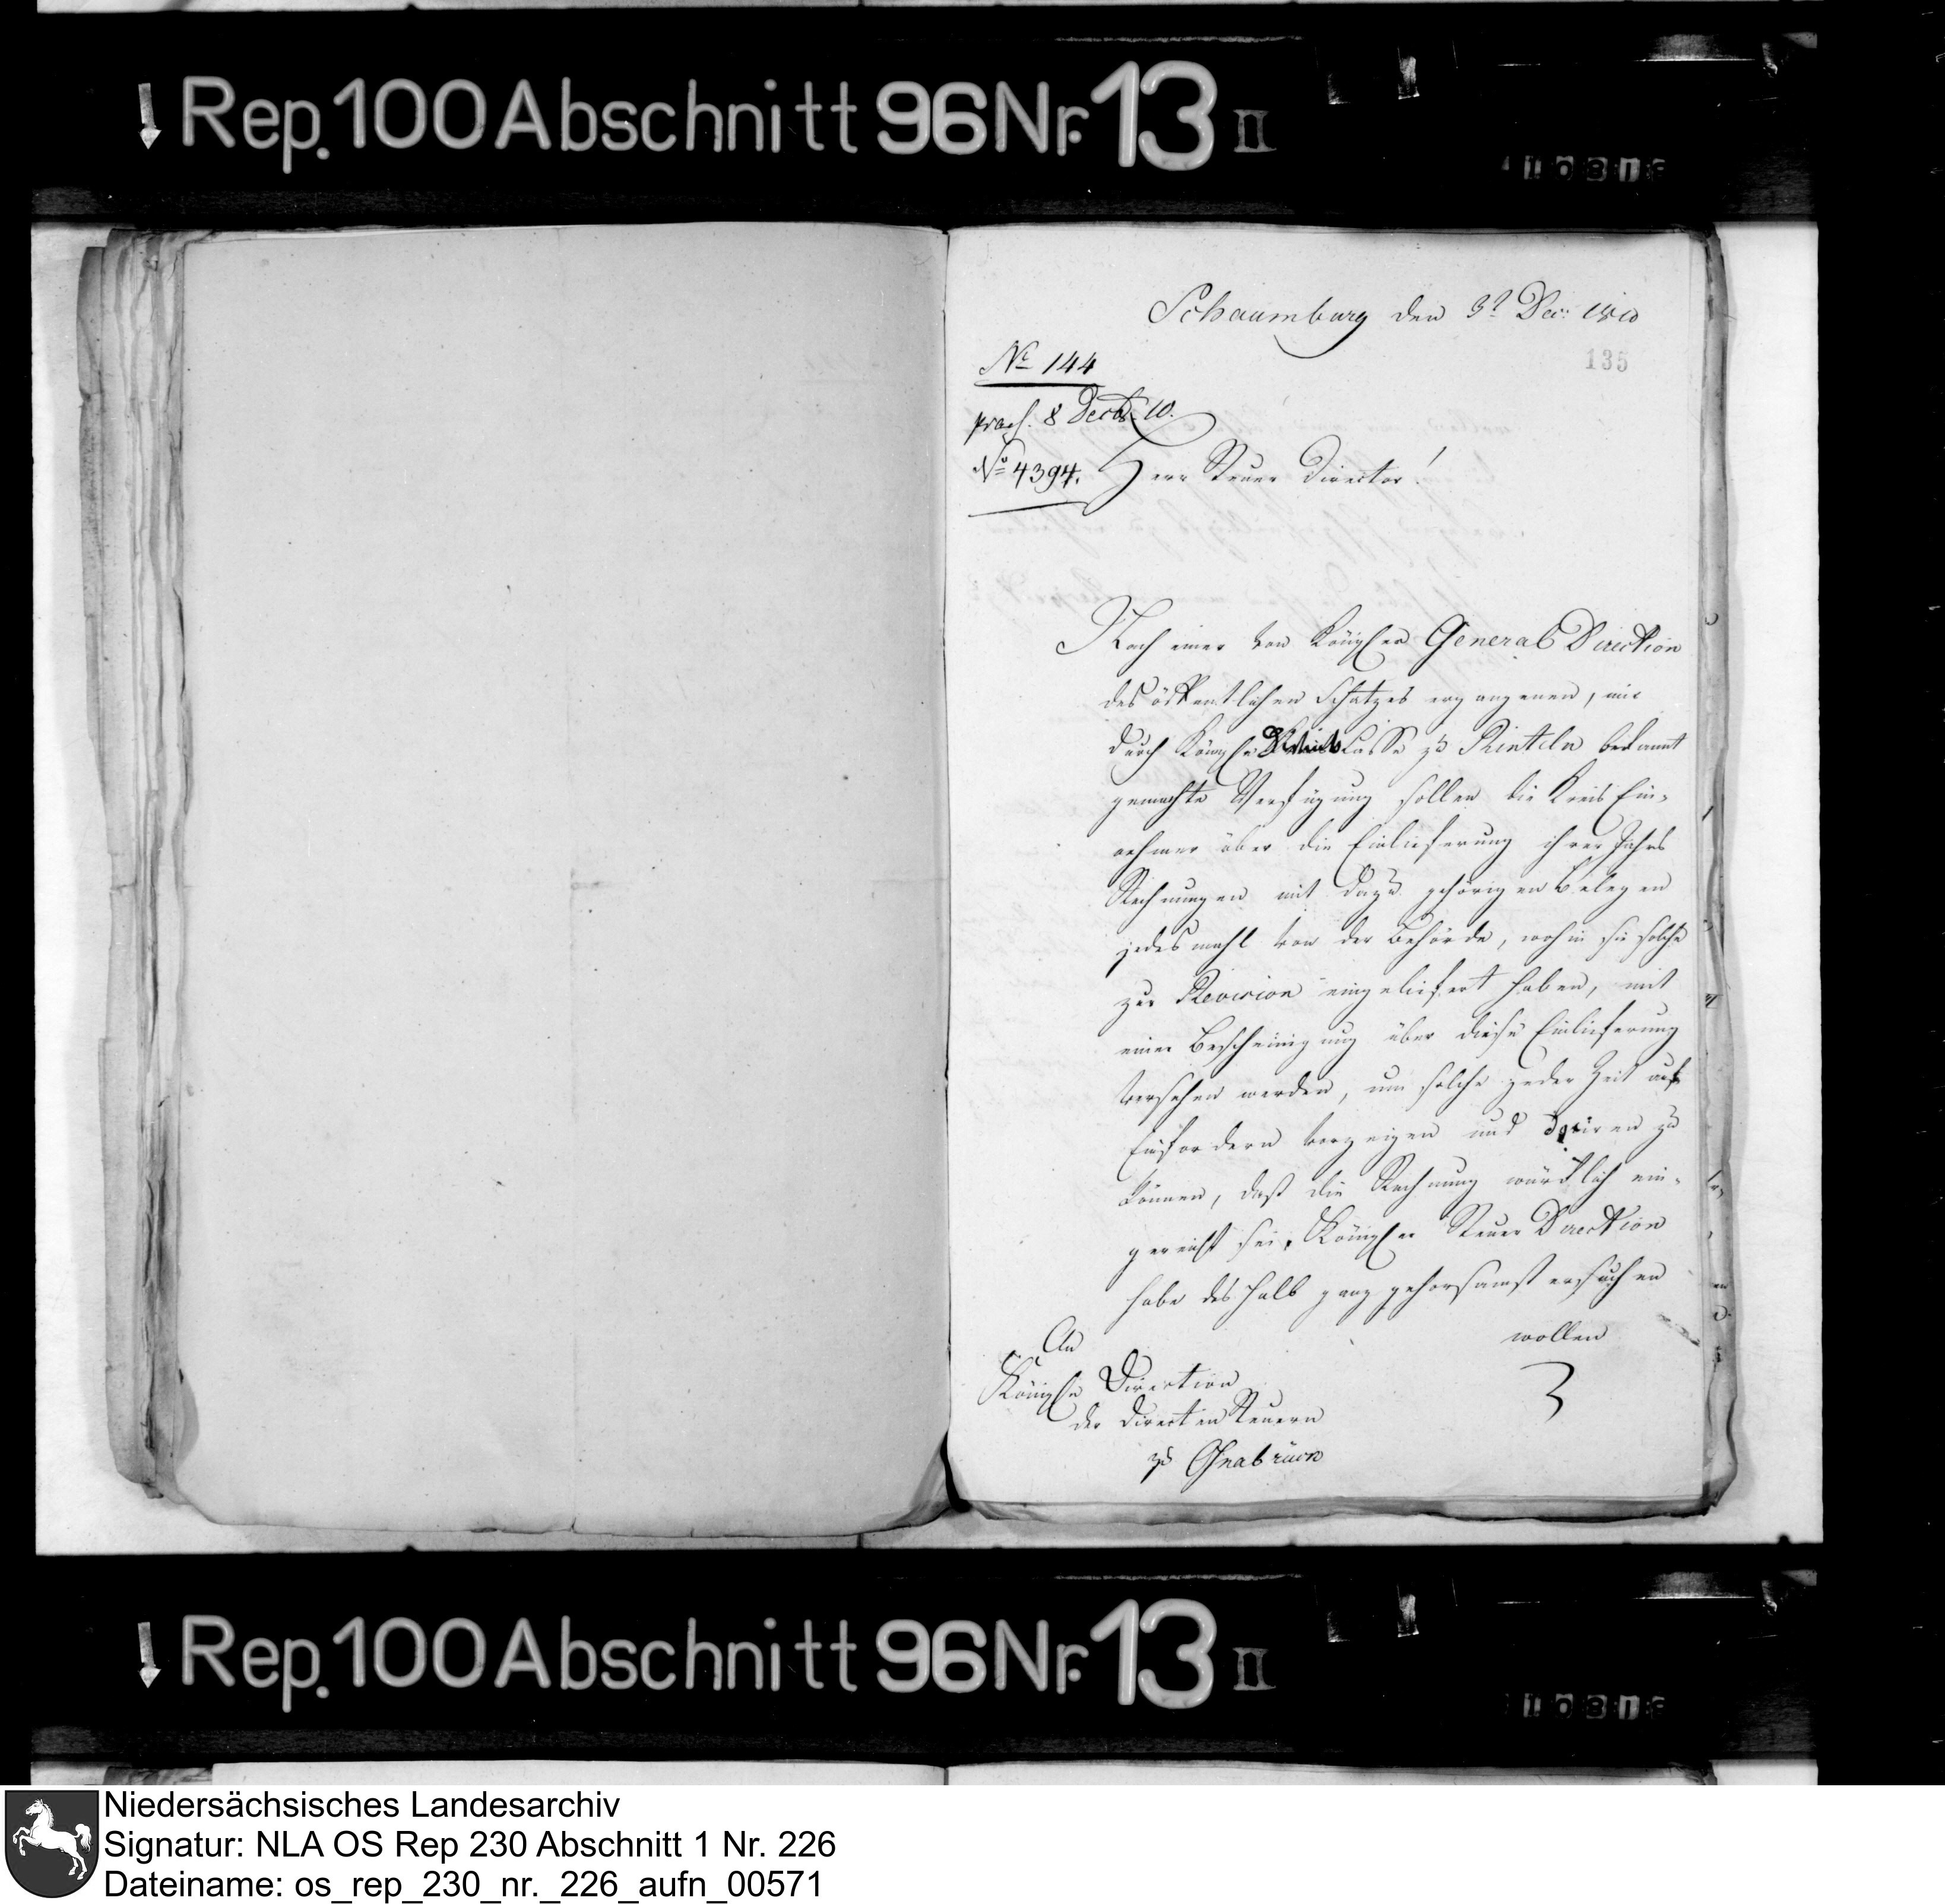 Rep. 100 Abschnitt 96 Nr. 13 II
10818
Schaumburg den 3t Dec: 1810
135
No 144
praes. 8 Decbr 10.
No 4394.
Herr Steuer Director!
Nach einer von Königlicher General Direction
des öffentlichen Schatzes ergangenen, mir
durch Königliche Casse zu Rinteln bekannt
gemachte Verfügung sollen die Kreis Ein-
nehmer über die Einlieferung ihrer Jahrs
Rechnungen mit dazu gehörigen Belegen
jedesmahl von der Behörde, wohin sie solche
zur Revision eingeliefert haben, mit
einer Bescheinigung über diese Einlieferung
versehen werden, um solche jeder Zeit auf
Einfordern vorzeigen und zu
können, daß die Rechnung würklich ein-
gereicht sei. Königliche Steuer Direction
habe deshalb ganz gehorsamst ersuchen
wollen
An
Königliche Direction
der Directen Steuern
zu Osnabrück
Rep. 100 Abschnitt 96 Nr. 13 II
10818
Niedersächsisches Landesarchiv
Signatur: NLA OS Rep 230 Abschnitt 1 Nr. 226
Dateiname: os_rep_230_nr._226_aufn_00571